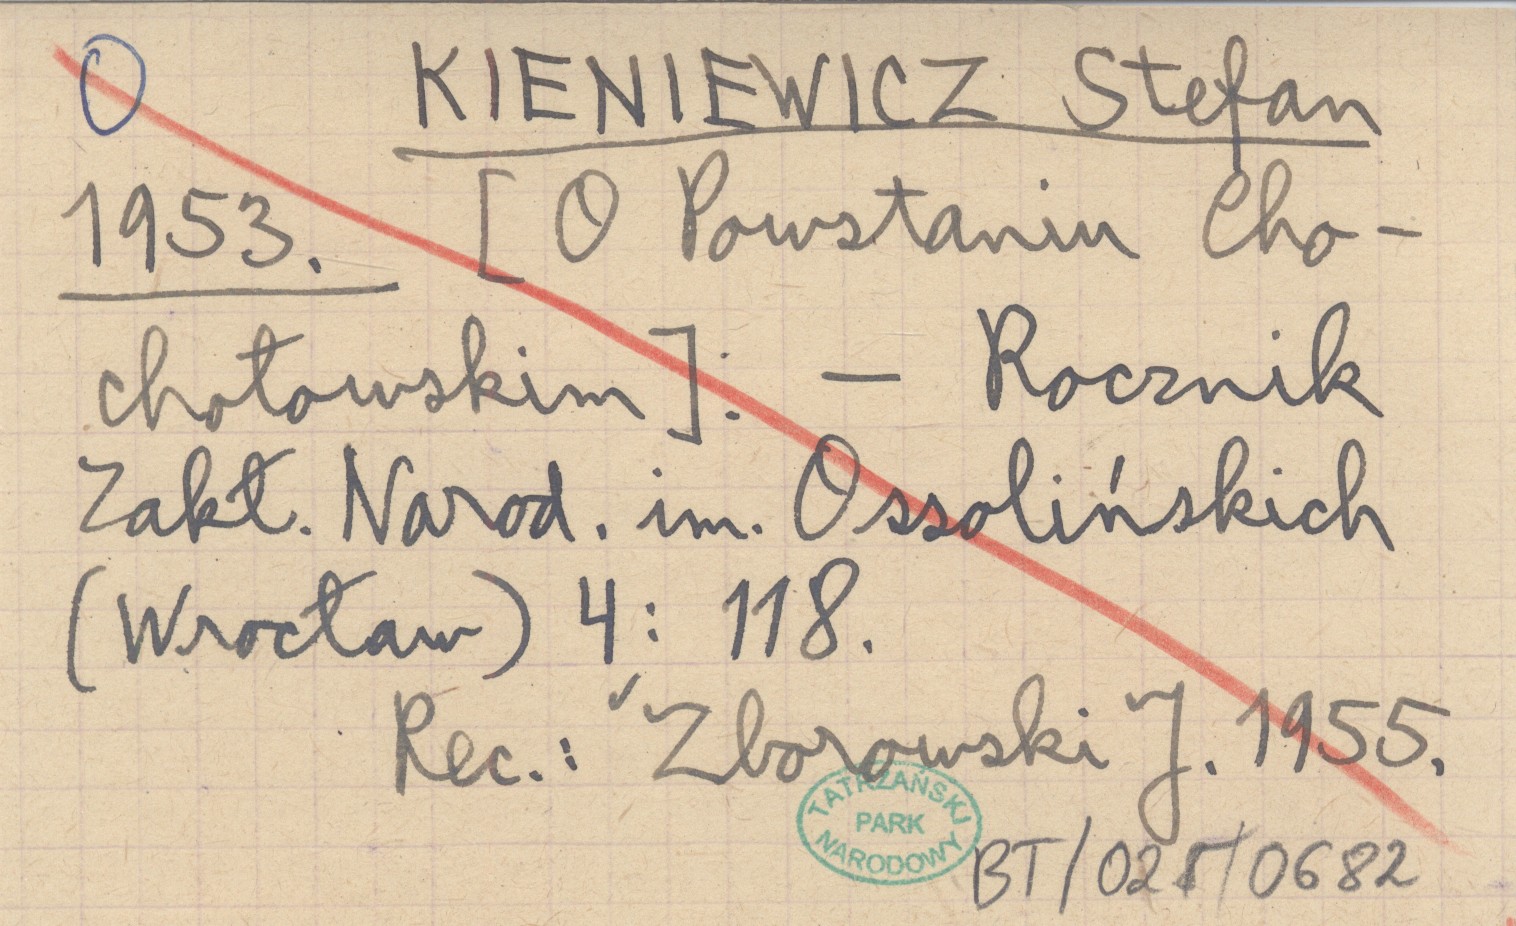 O KIENIEWICZ Stefan
1953. [O Powstaniu Cho-
chołowskim]: — Rocznik
Zakł. Narod. im. Ossolińskich
(Wrocław) 4: 118.
Rec.: Zborowski J. 1955.
TATRZAŃSKI
PARK
NARODOWY
BT/025/0682